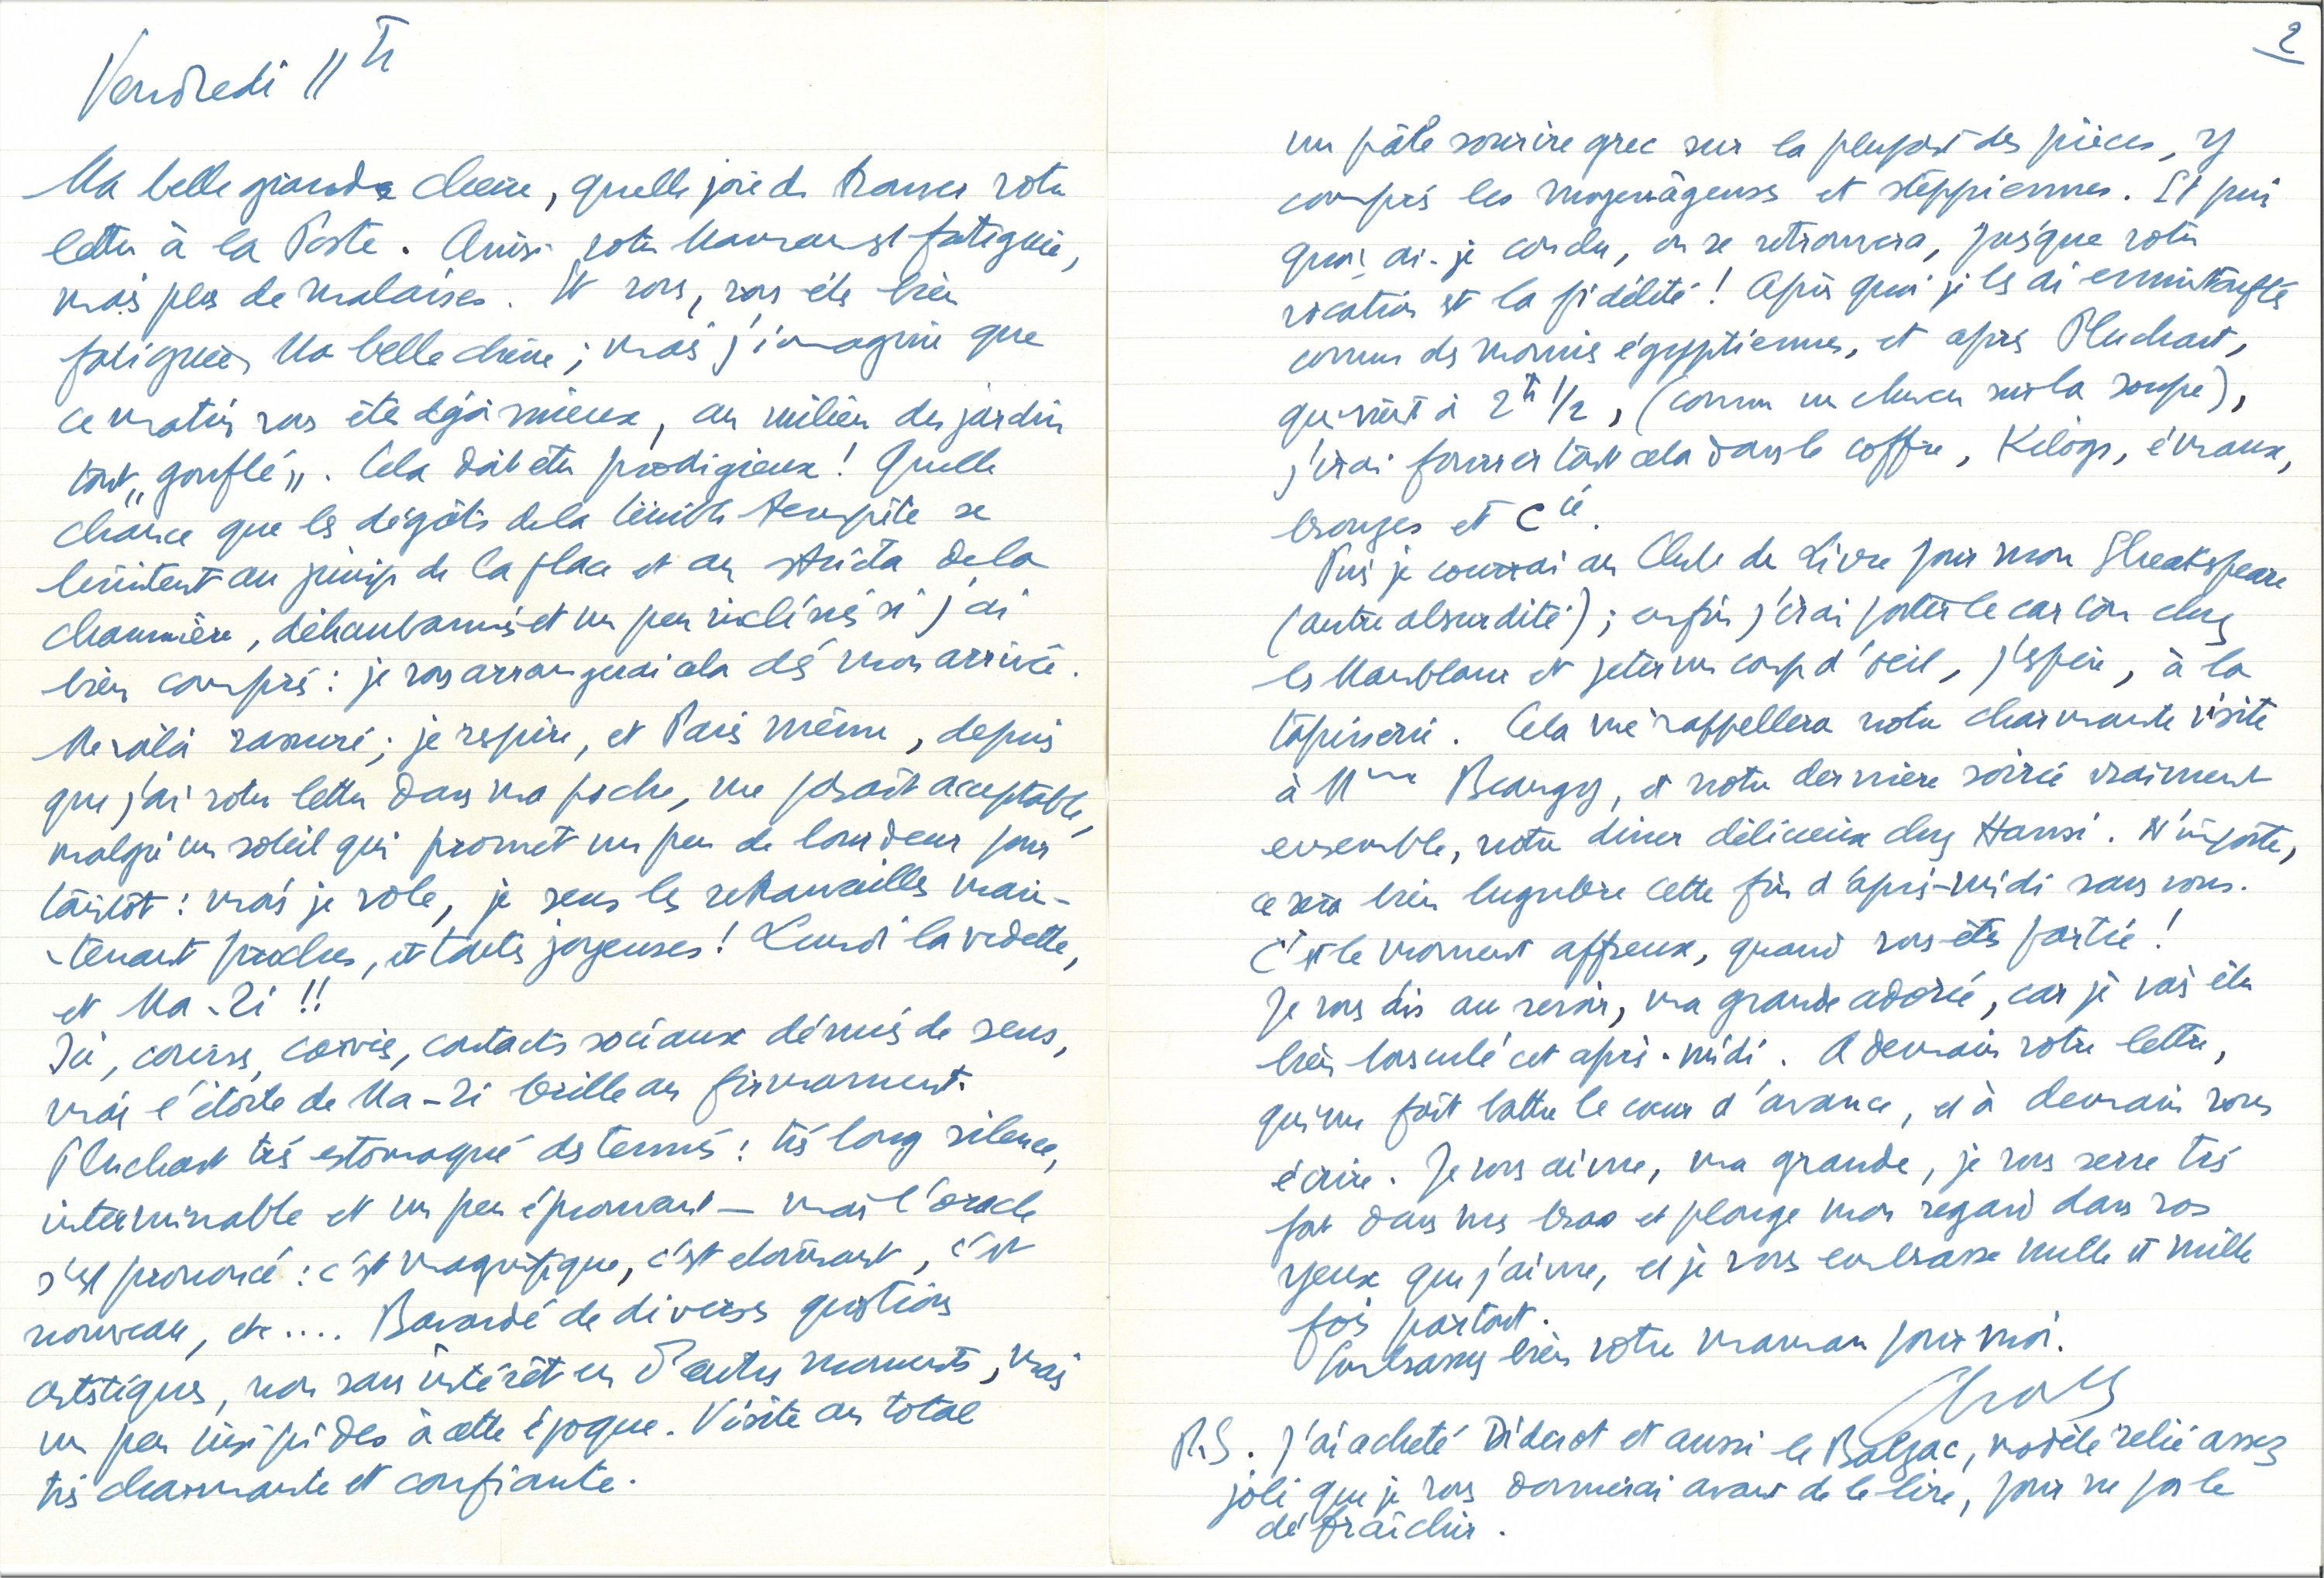 Vendredi 11 h
Ma belle grande chérie, quelle joie de trouver votre
lettre à la Poste. Ainsi votre Maman est fatiguée,
mais plus de malaises. Et vous, vous êtes bien
fatiguée, Ma belle chérie ; mais j'imagine que
ce matin vous êtes déjà mieux, au milieu du jardin
tout „gonflé„. Cela doit être prodigieux ! Quelle
chance que les dégâts de la terrible tempête se
limitent au junip de la place et au de la
chaumière, et un peu inclinés si j'ai
bien compris : je vous arrangerai cela dès mon arrivée.
Me voilà rassuré ; je respire, et Paris même, depuis
que j'ai votre lettre dans ma poche, me paraît acceptable,
malgré un soleil qui promet un peu de lourdeur pour
tantôt : mais je vole, je sens les retrouvailles main-
-tenant proches, et toutes joyeuses ! Lundi la vedette,
et Ma-Zi !!
Ici, courses, corvées, contacts sociaux démunis de sens,
mais l'étoile de Ma-Zi brille au firmament.
Pluchart très estomaqué des tennis : très long silence,
interminable et un peu éprouvant — mais l'oracle
s'est prononcé : c'est magnifique, c'est étonnant, c'est
nouveau, etc.... Bavardé de diverses questions
artistiques, non sans intérêt en d'autres moments, mais
un peu insipides à cette époque. Visite au total
très charmante et confiante.
2
un pâle sourire grec sur la plupart des pièces, y
compris les moyenâgeuses et steppiennes. Et puis
quoi, ai-je conclu, on se retrouvera, puisque votre
vocation est la fidélité ! Après quoi je les ai emmitouflés
comme des momies égyptiennes, et après Pluchart,
qui vient à 2 h 1/2, (comme un cheveu sur la soupe),
j'irai fourrer tout cela dans le coffre, Kilogs, émaux,
bronzes et Cie.
Puis je courrai au Club du Livre pour mon Sheakspeare
(autre absurdité) ; enfin j'irai porter le carton chez
les Mamblour et jeter un coup d'oeil, j'espère, à la
tapisserie. Cela me rappellera notre charmante visite
à Mme Beangy, et notre dernière soirée vraiment
ensemble, notre dîner délicieux chez Hansi. N'importe,
ce sera bien lugubre cette fin d'après-midi sans vous.
C'est le moment affreux, quand vous êtes partie !
Je vous dis au revoir, ma grande adorée, car je vais être
bien bousculé cet après-midi. A demain votre lettre,
qui me fait battre le coeur d'avance, et à demain vous
écrire. Je vous aime, ma grande, je vous serre très
fort dans mes bras et plonge mon regard dans vos
yeux que j'aime, et je vous embrasse mille et mille
fois partout.
Embrassez bien votre maman pour moi.
Charles
P.S. J'ai acheté Diderot et aussi le Balzac, modèle relié assez
joli que je vous donnerai avant de le lire, pour ne pas le
défraîchir.